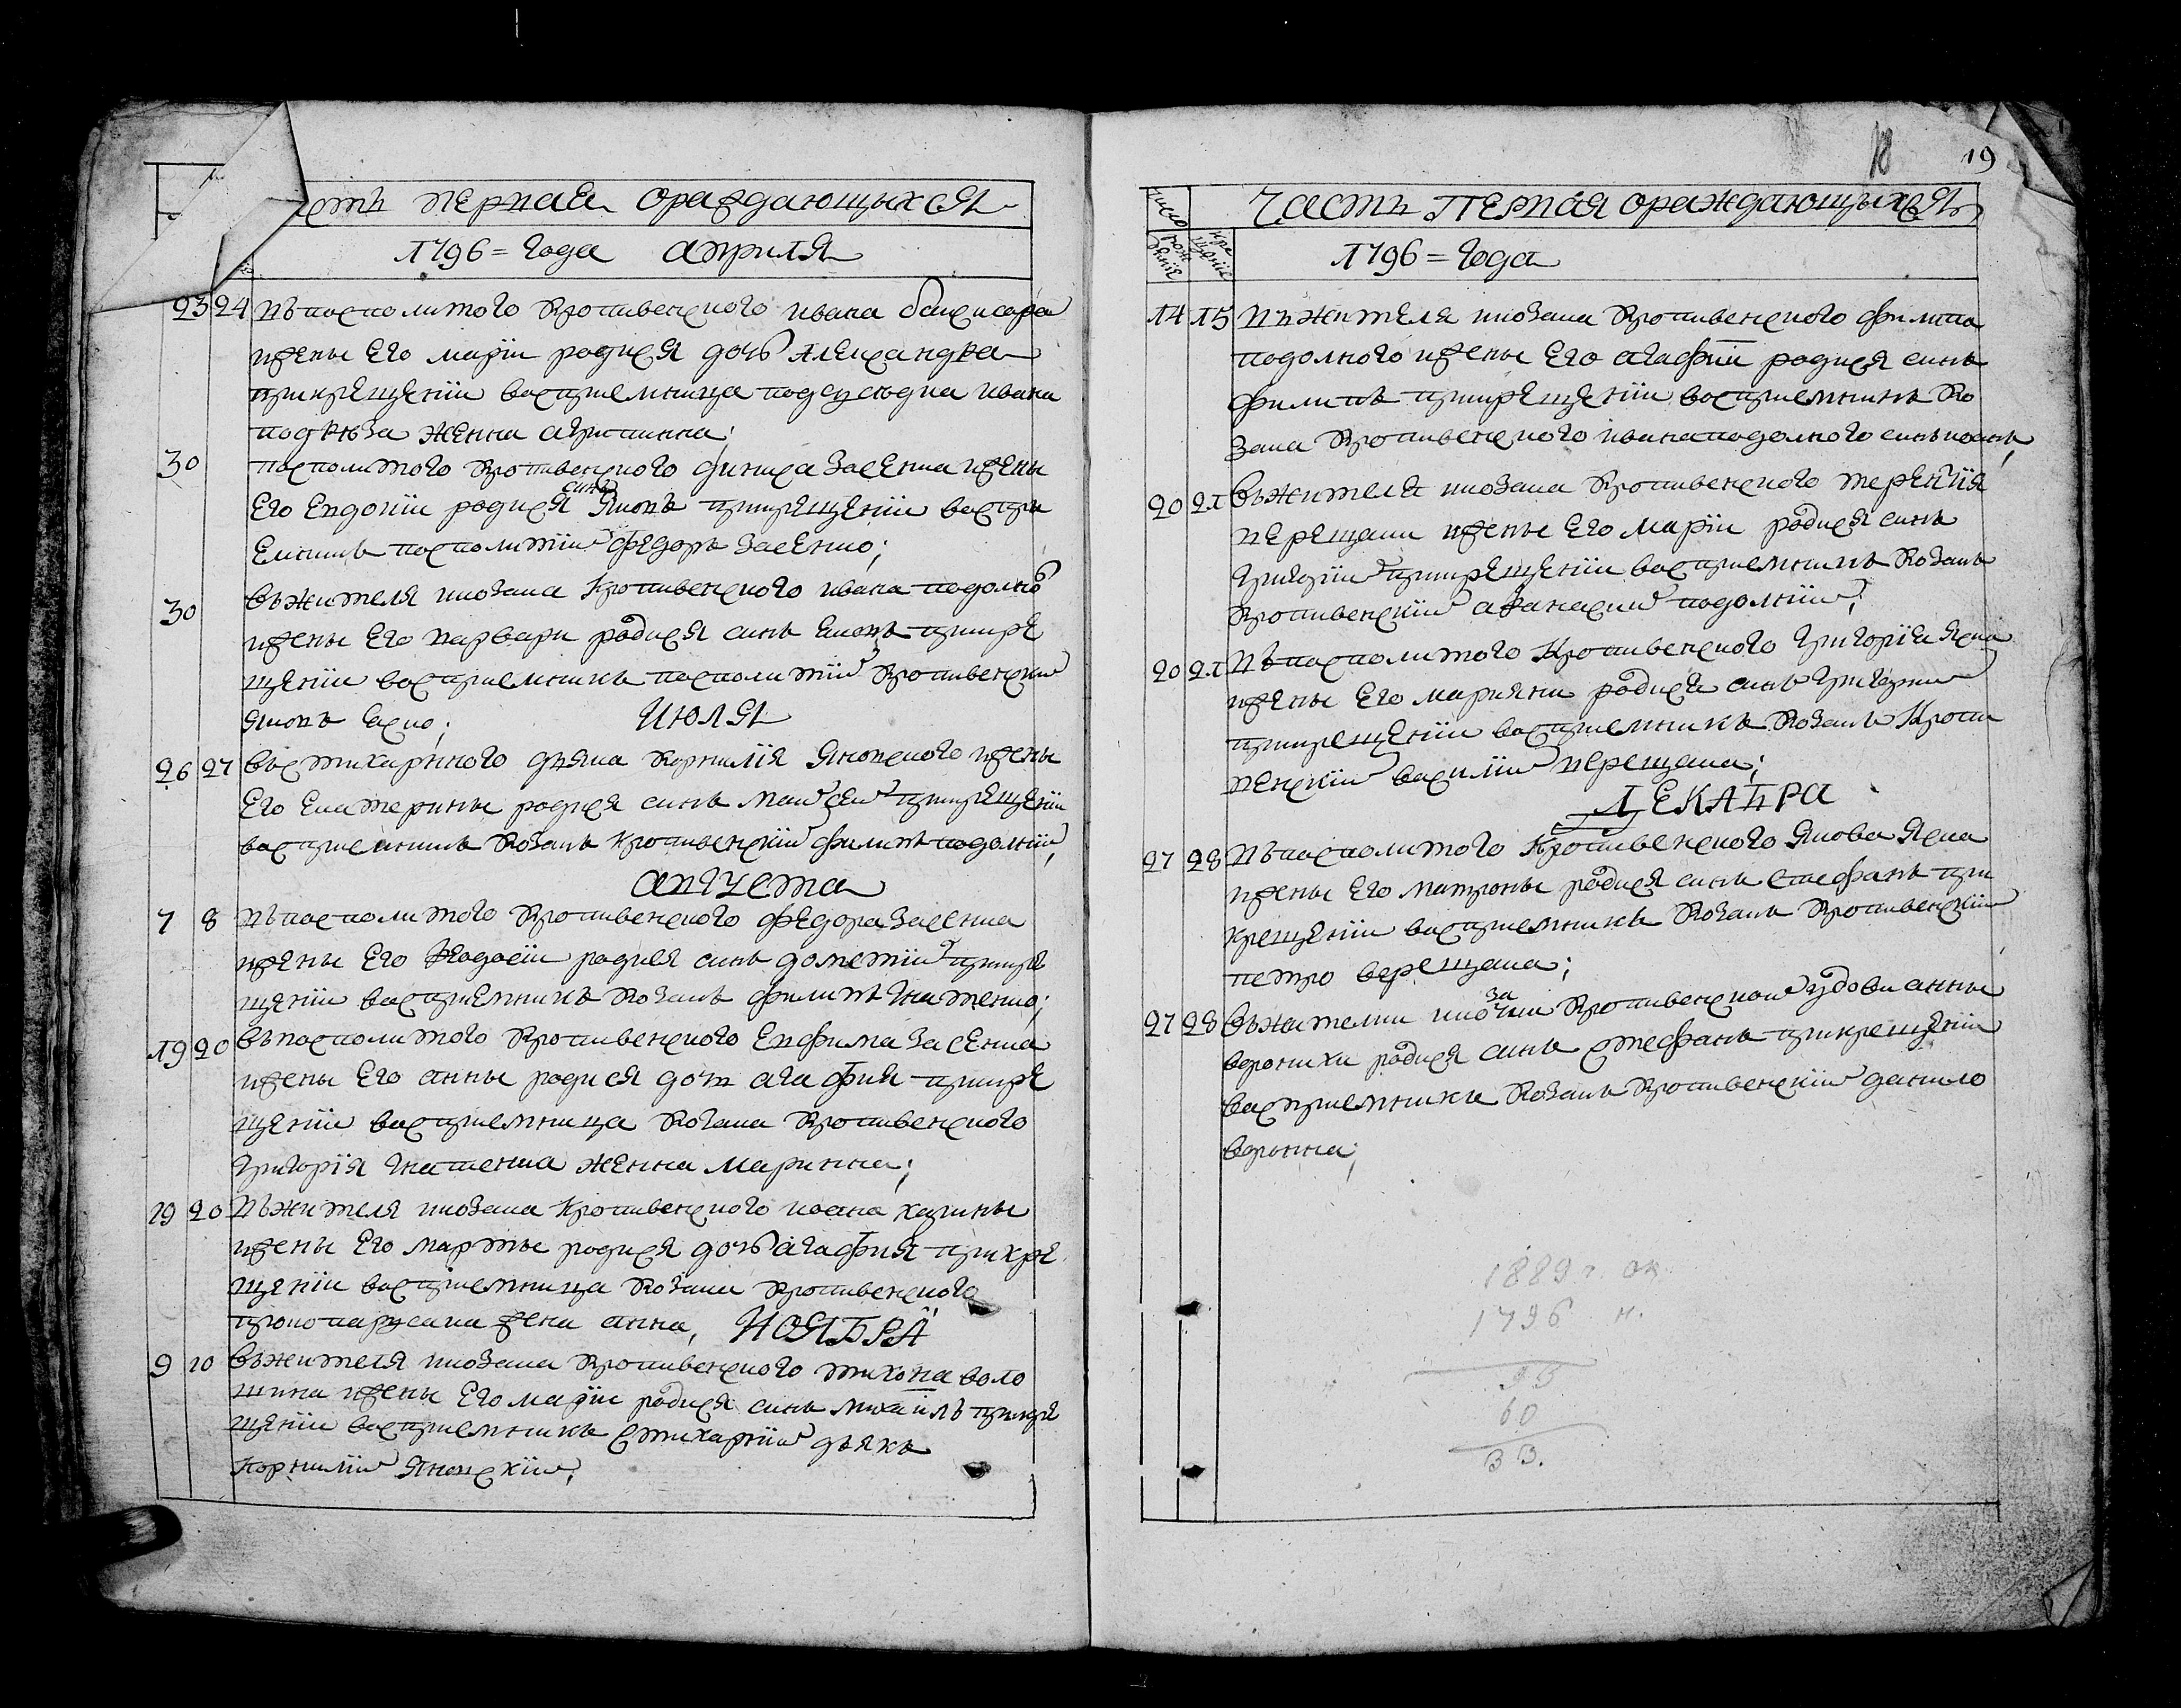 сть первая ораждающыхся
1796 = года априля
23 24 Въ посполитого Кропивенского ивана
ижены Его маріи родися дочь Александра
прикрещеніи воспріемница подсусѣдка ивана
женна агрипинна;
30 посполитого Кропивенского Засенка ижены
Его Евдокіи родися синъ Яковъ прикрещеніи воспри
Емникъ посполитій Федоръ Засенко;
30 Въжителя икозака Кропивенского ивана подолного
ижены Его варвари родися синъ Яковъ прикре
щеніи воспріемникъ посполитій Кропивенскій
Яковъ
ИЮЛЯ
26 27 Въстихарного дяка Корнилія Яновского ижены
Его Екатерины родися синъ Моисей прикрещеніи
воспріемникъ Козакъ Кропивенскій филипъ подолній;
августа
7 8 Въпосполитого Кропивенского Федора Засенка
ижены Его Феодосіи родися синъ дометій прикре
щеніи воспріемникъ Козакъ филипъ Гнатенко;
19 20 Въпосполитого Кропивенского Евфима Засенка
ижены Его анны родися доч агафия прикре
щеніи воспріемница Козака Кропивенского
Григорія Гнатенка женна Маринна;
19 20 Въжителя икозака Кропивенского ивана
ижены Его марты родися дочь агафия прикре
щеніи воспріемница Козака Кропивенского
прокопа жена анна,
НОЯБРА
9 10 Въжителя икозака Кропивенского тихона воло
шина ижены Его маріи родися синъ михаилъ прикре
щеніи воспріемникъ стихарній дьякъ
Корнилій Яновскій;
18 19
Число
рож деній
кре щеній
Часть Первая ораждающыхся
1796 = года
14 15 Въжителя икозака Кропивенского филипа
подолного ижены Его агафіи родися синъ
филипъ прикрещеніи воспріемникъ Ко
зака Кропивенского ивана подолного синъ иоанъ;
20 21 Въжителя икозака Кропивенского терентія
верещаки ижены Его маріи родися синъ
Григорій прикрещеніи воспріемникъ Козакъ
Кропивенскій афанасий подолній;
20 21 Въпосполитого Кропивенского Григорія
ижены Его марияни родися синъ Григорий
прикрещеніи воспріемникъ Козакъ Кропи
венскій василій верещака;
ДЕКАБРА
27 28 Въпосполитого Кропивенского Якова
ижены Его матроны родися синъ стефанъ при
крещеніи воспріемникъ Козакъ Кропивенскій
петро верещака;
27 28 Въжителки икозачки Кропивенской удови анны
воронихи родися синъ стефанъ прикрещеніи
воспріемникъ Козакъ Кропивенскій данило
ворона;
1889 г. ок.
1796 н.
93
60
33.